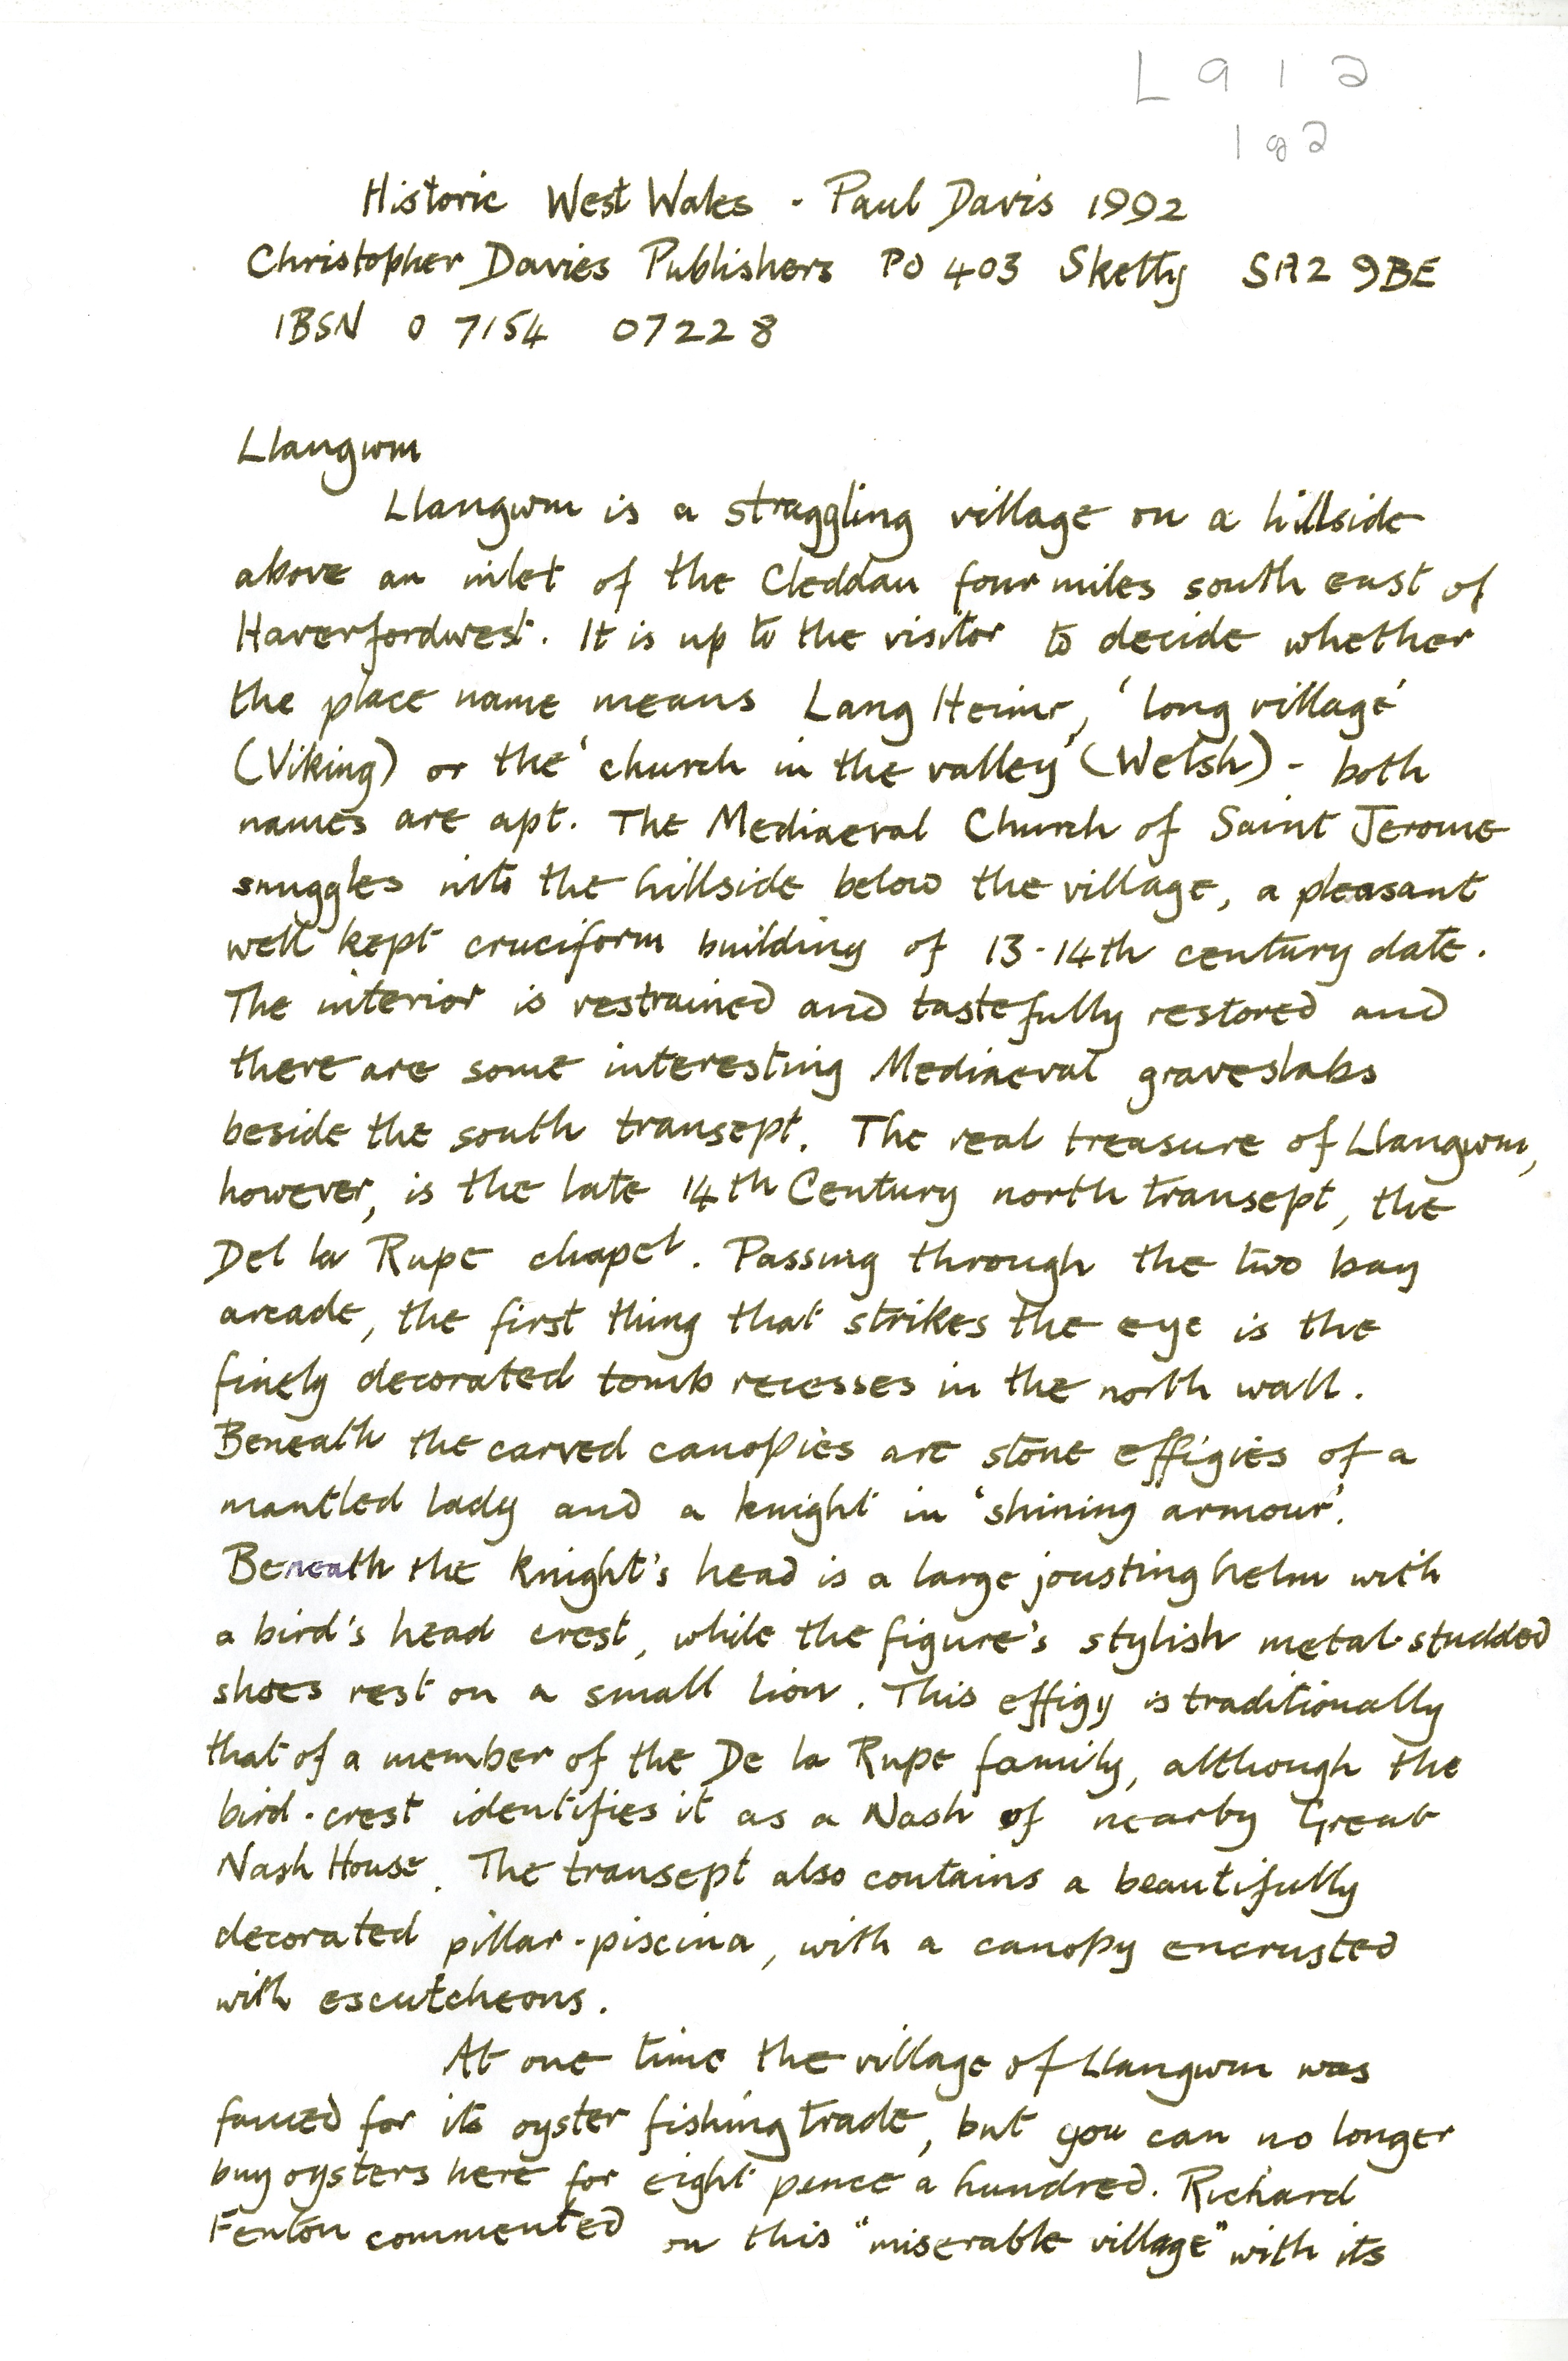 L 9 1 2
1 o 2
Historic West Wales - Paul Davis 1992
Christopher Davies Publishers PO 403 Sketty SA2 9BE
IBSN 0 7154 07228
Llangwm
Llangwm is a straggling village on a hillside
above an inlet of the Cleddau four miles south east of
Haverfordwest. It is up to the visitor to decide whether
the place name means Lang Heimr, 'long village'
(Viking) or the 'church in the valley' (Welsh) - both
names are apt. The Mediaeval Church of Saint Jerome
snuggles into the hillside below the village, a pleasant
well kept cruciform building of 13-14th century date.
The interior is restrained and tastefully restored and
there are some interesting Mediaeval graveslabs
beside the south transept. The real treasure of Llangwm,
however, is the late 14th Century north transept, the
Del la Rupe chapel. Passing through the two bay
arcade, the first thing that strikes the eye is the
finely decorated tomb recesses in the north wall.
Beneath the carved canopies are stone effigies of a
mantled lady and a knight in 'shining armour'.
Beneath the knight's head is a large jousting helm with
a bird's head crest, while the figure's stylish metal-studded
shoes rest on a small lion. This effigy is traditionally
that of a member of the De la Rupe family, although the
bird-crest identifies it as a Nash of nearby Great
Nash House. The transept also contains a beautifully
decorated pillar-piscina, with a canopy encrusted
with escutcheons.
At one time the village of Llangwm was
famed for its oyster fishing trade, but you can no longer
buy oysters here for eight pence a hundred. Richard
Fenton commented on this "miserable village" with its